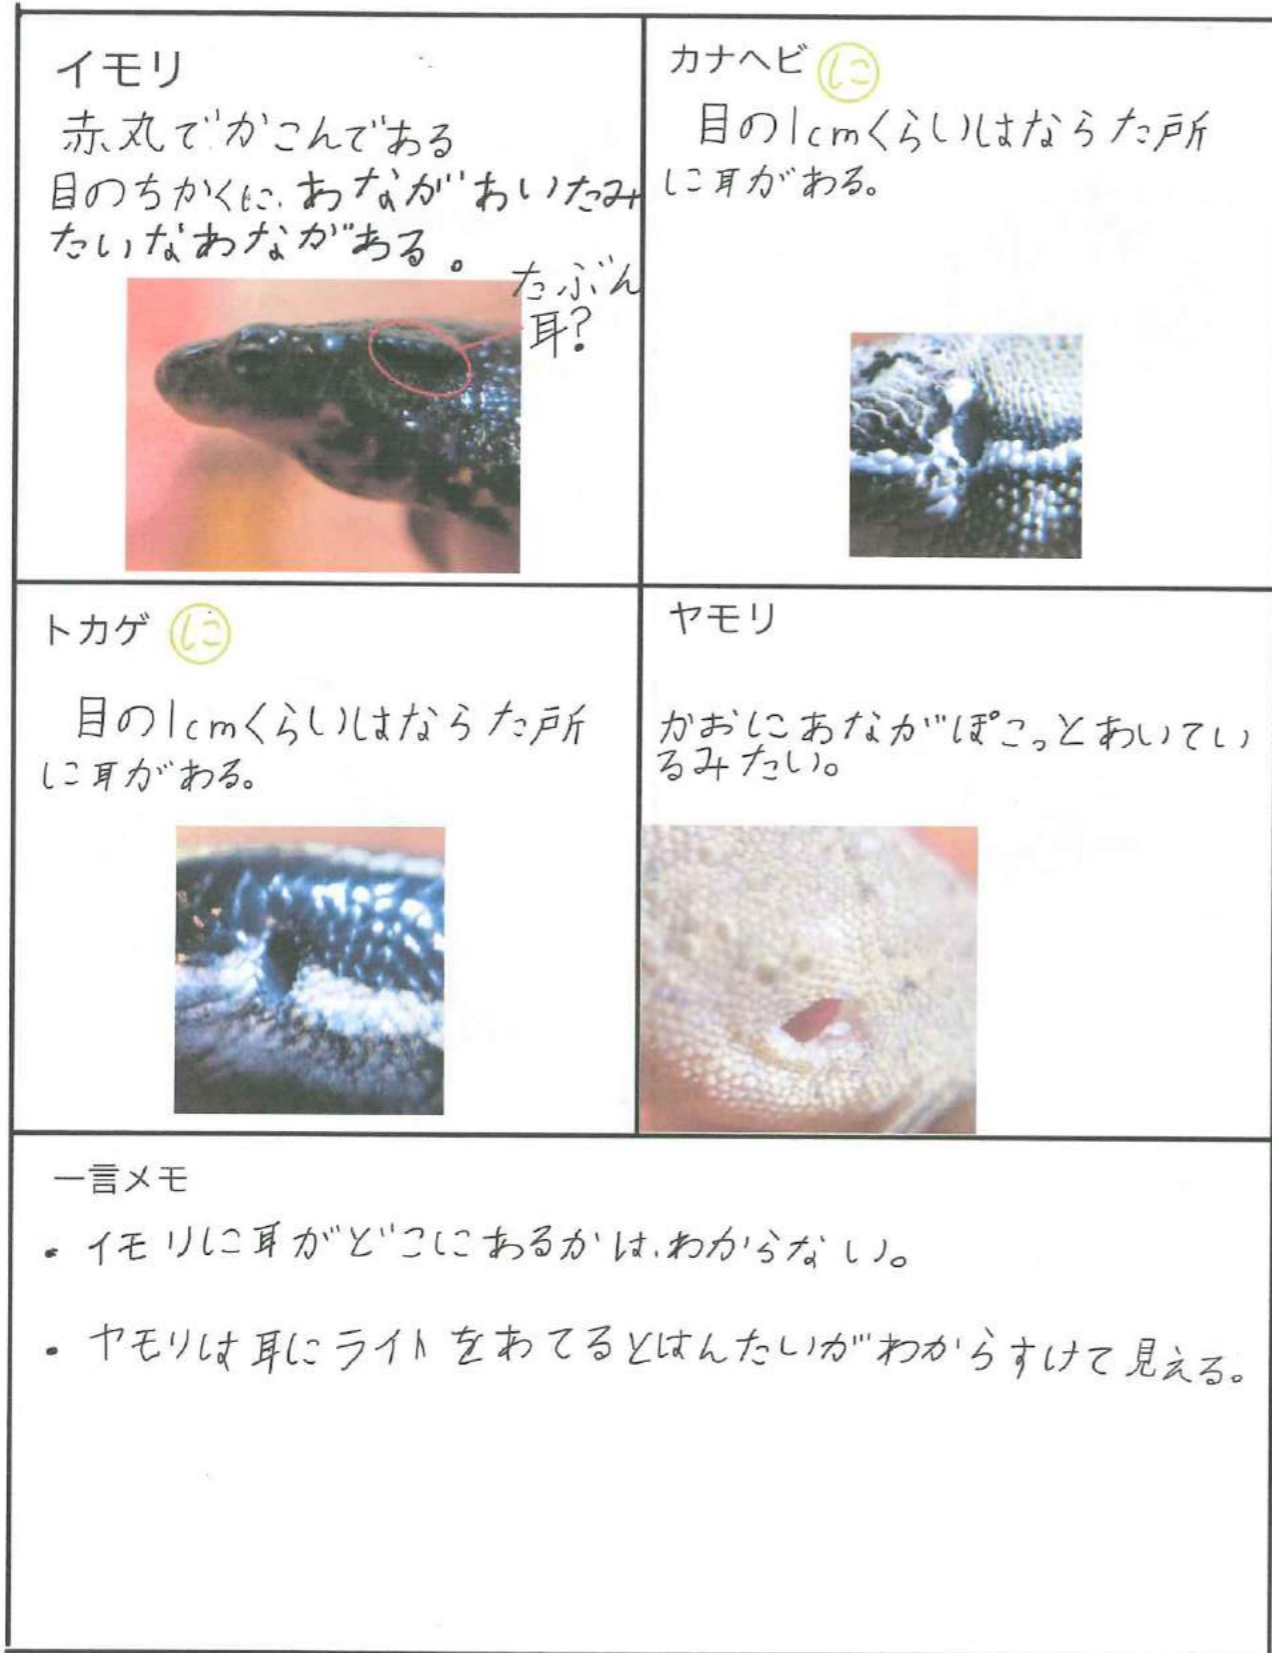 イモリ
赤丸でかこんである
目のちかくに、あながあいたみ
たいなあながある。
たぶん
耳?
カナヘビ に
目の1cmくらいはならた所
に耳がある。
トカゲ に
目の1cmくらいはならた所
に耳がある。
ヤモリ
かおにあながぽこっとあいてい
るみたい。
一言メモ
・イモリに耳がどこにあるかは、わからない。
・ヤモリは耳にライトをあてるとはんたいがわからすけて見える。